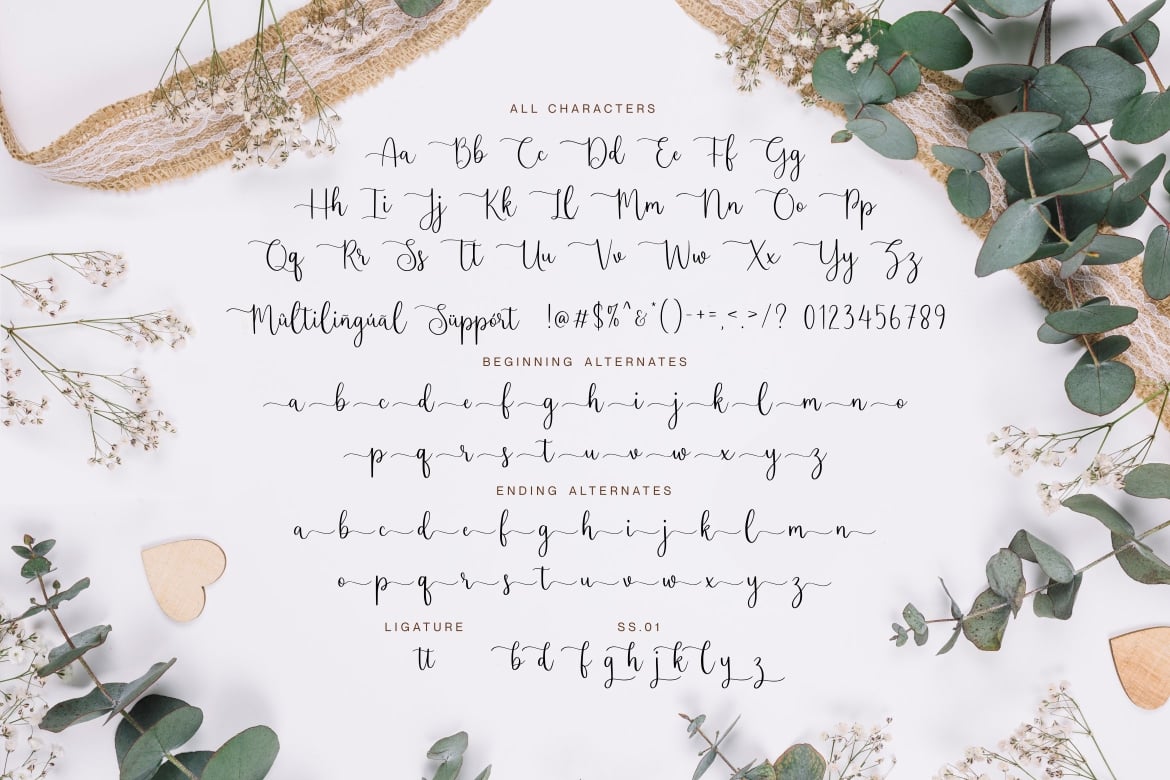 ALL CHARACTERS
Aa Bb Cc Dd Ee Ff Gg
Hh Ii Jj Kk Ll Mm Nn Oo Pp
Qq Rr Ss Tt Uu Vv Ww Xx Yy Zz
Mûltilin̄gúãl Süppórt !@#$%^&*()-+=,<.>/? 0123456789
BEGINNING ALTERNATES
a b c d e f g h i j k l m n o
p q r s t u v w x y z
ENDING ALTERNATES
a b c d e f g h i j k l m n
o p q r s t u v w x y z
LIGATURE SS.01
tt b d f g h j k l y z